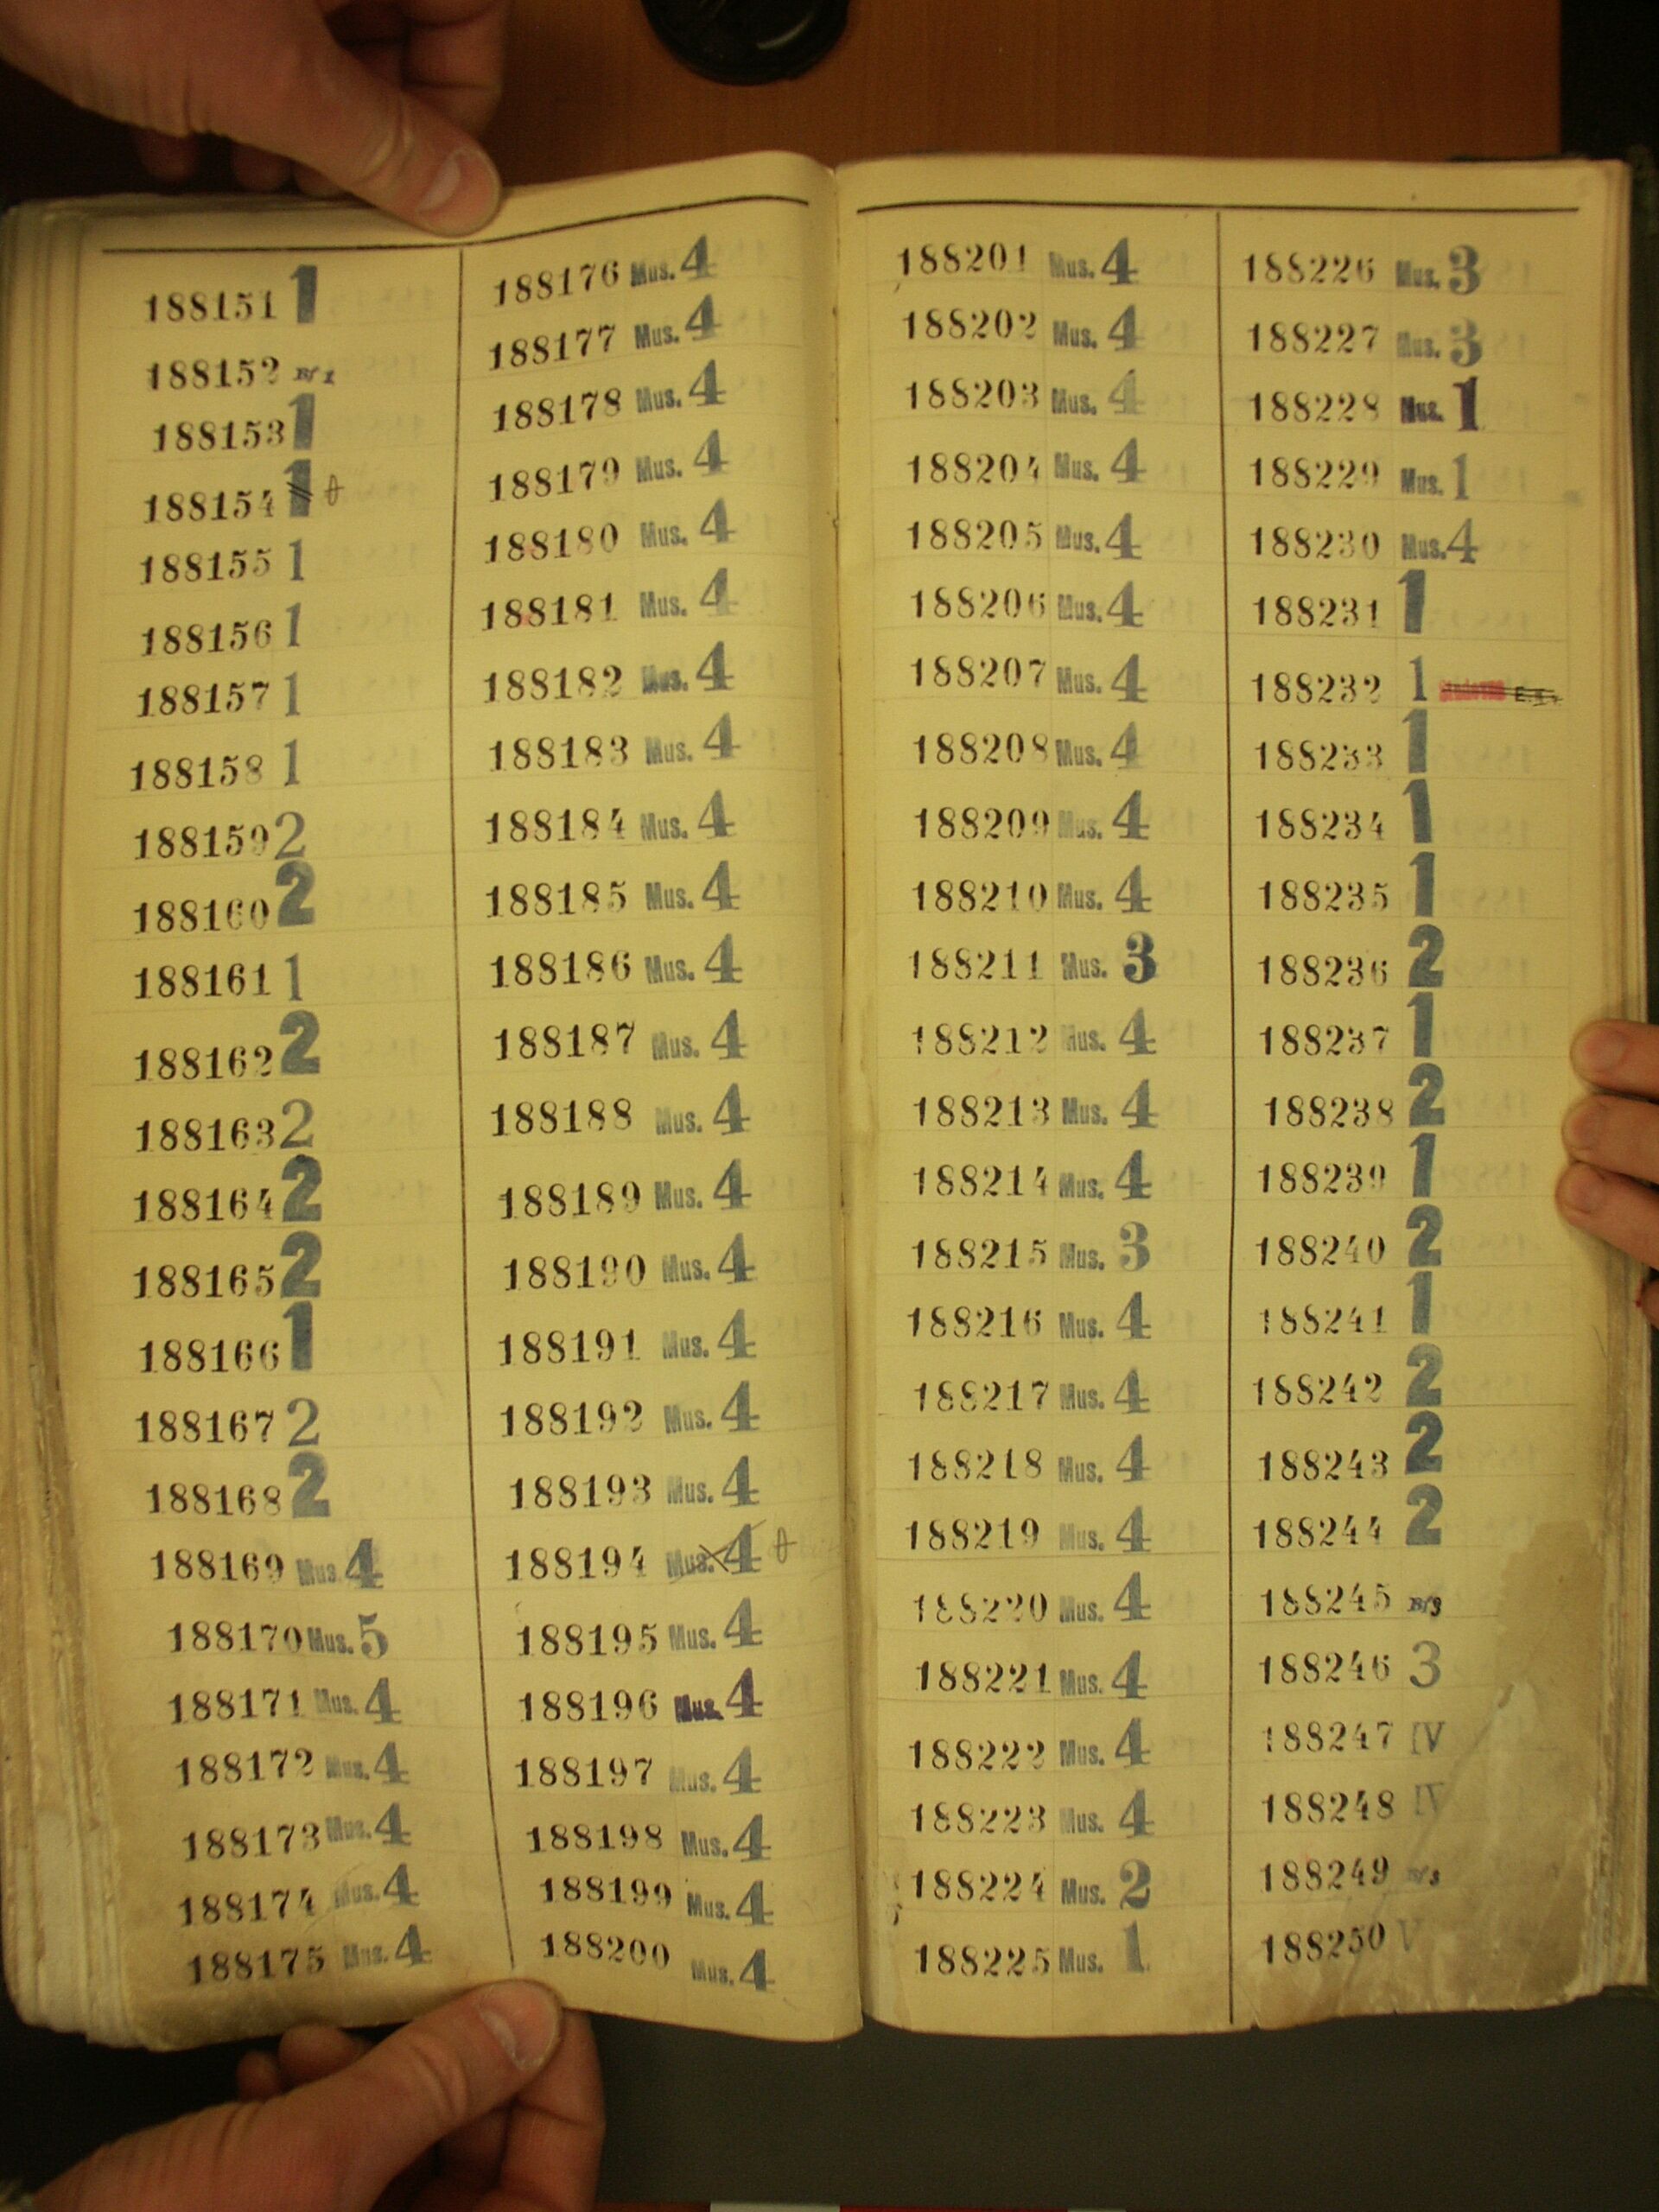 188151 1
188152 B/1
188153 1
188154 1 θ
188155 1
188156 1
188157 1
188158 1
188159 2
188160 2
188161 1
188162 2
188163 2
188164 2
188165 2
188166 1
188167 2
188168 2
188169 Mus. 4
188170 Mus. 5
188171 Mus. 4
188172 Mus. 4
188173 Mus. 4
188174 Mus. 4
188175 Mus. 4
188176 Mus. 4
188177 Mus. 4
188178 Mus. 4
188179 Mus. 4
188180 Mus. 4
188181 Mus. 4
188182 Mus. 4
188183 Mus. 4
188184 Mus. 4
188185 Mus. 4
188186 Mus. 4
188187 Mus. 4
188188 Mus. 4
188189 Mus. 4
188190 Mus. 4
188191 Mus. 4
188192 Mus. 4
188193 Mus. 4
188194 Mus. 4 θ
188195 Mus. 4
188196 Mus. 4
188197 Mus. 4
188198 Mus. 4
188199 Mus. 4
188200 Mus. 4
188201 Mus. 4
188202 Mus. 4
188203 Mus. 4
188204 Mus. 4
188205 Mus. 4
188206 Mus. 4
188207 Mus. 4
188208 Mus. 4
188209 Mus. 4
188210 Mus. 4
188211 Mus. 3
188212 Mus. 4
188213 Mus. 4
188214 Mus. 4
188215 Mus. 3
188216 Mus. 4
188217 Mus. 4
188218 Mus. 4
188219 Mus. 4
188220 Mus. 4
188221 Mus. 4
188222 Mus. 4
188223 Mus. 4
188224 Mus. 2
188225 Mus. 1
188226 Mus. 3
188227 Mus. 3
188228 Mus. 1
188229 Mus. 1
188230 Mus. 4
188231 1
188232 1
188233 1
188234 1
188235 1
188236 2
188237 1
188238 2
188239 1
188240 2
188241 1
188242 2
188243 2
188244 2
188245 B/3
188246 3
188247 IV
188248 IV
188249 B/3
188250 V